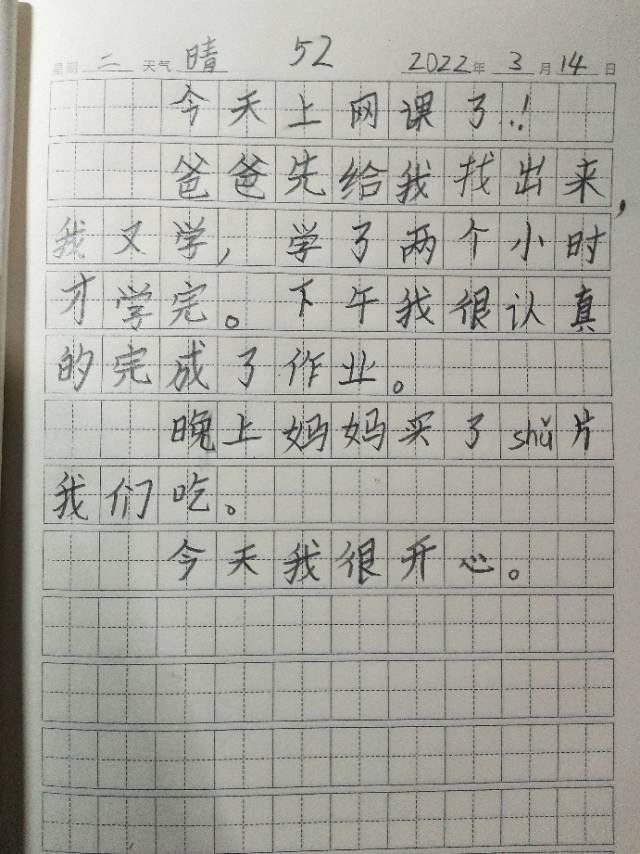 星期 二 天气 晴 52 2022年 3月 14日
今天上网课了!
爸爸先给我找出来,
我又学,学了两个小时
才学完。下午我很认真
的完成了作业。
晚上妈妈买了shǔ片
我们吃。
今天我很开心。